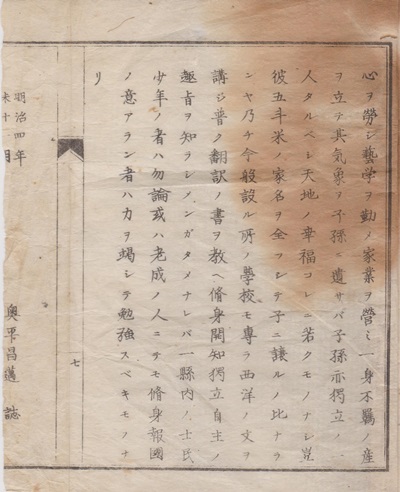 心ヲ勞シ藝学ヲ勤メ家業ヲ營ミ一身不羈ノ産
ヲ立テ其気象ヲ子孫ニ遺サバ子孫亦獨立ノ
人タルベシ天地ノ幸福コレニ若クモノナシ豈
彼五斗米ノ家名ヲ全フシテ子ニ譲ルノ比ナラ
ンヤ乃チ今般設ル所ノ學校モ専ラ西洋ノ文ヲ
講ジ普ク翻訳ノ書ヲ教ヘ脩身開知獨立自主ノ
趣旨ヲ知ラシメンガタメナレバ一縣内ノ士民
少年ノ者ハ勿論或ハ老成ノ人ニテモ脩身報國
ノ意アラン者ハ力ヲ竭シテ勉強スベキモノナ
リ
七
明治四年
未十一月
奥平昌邁 誌